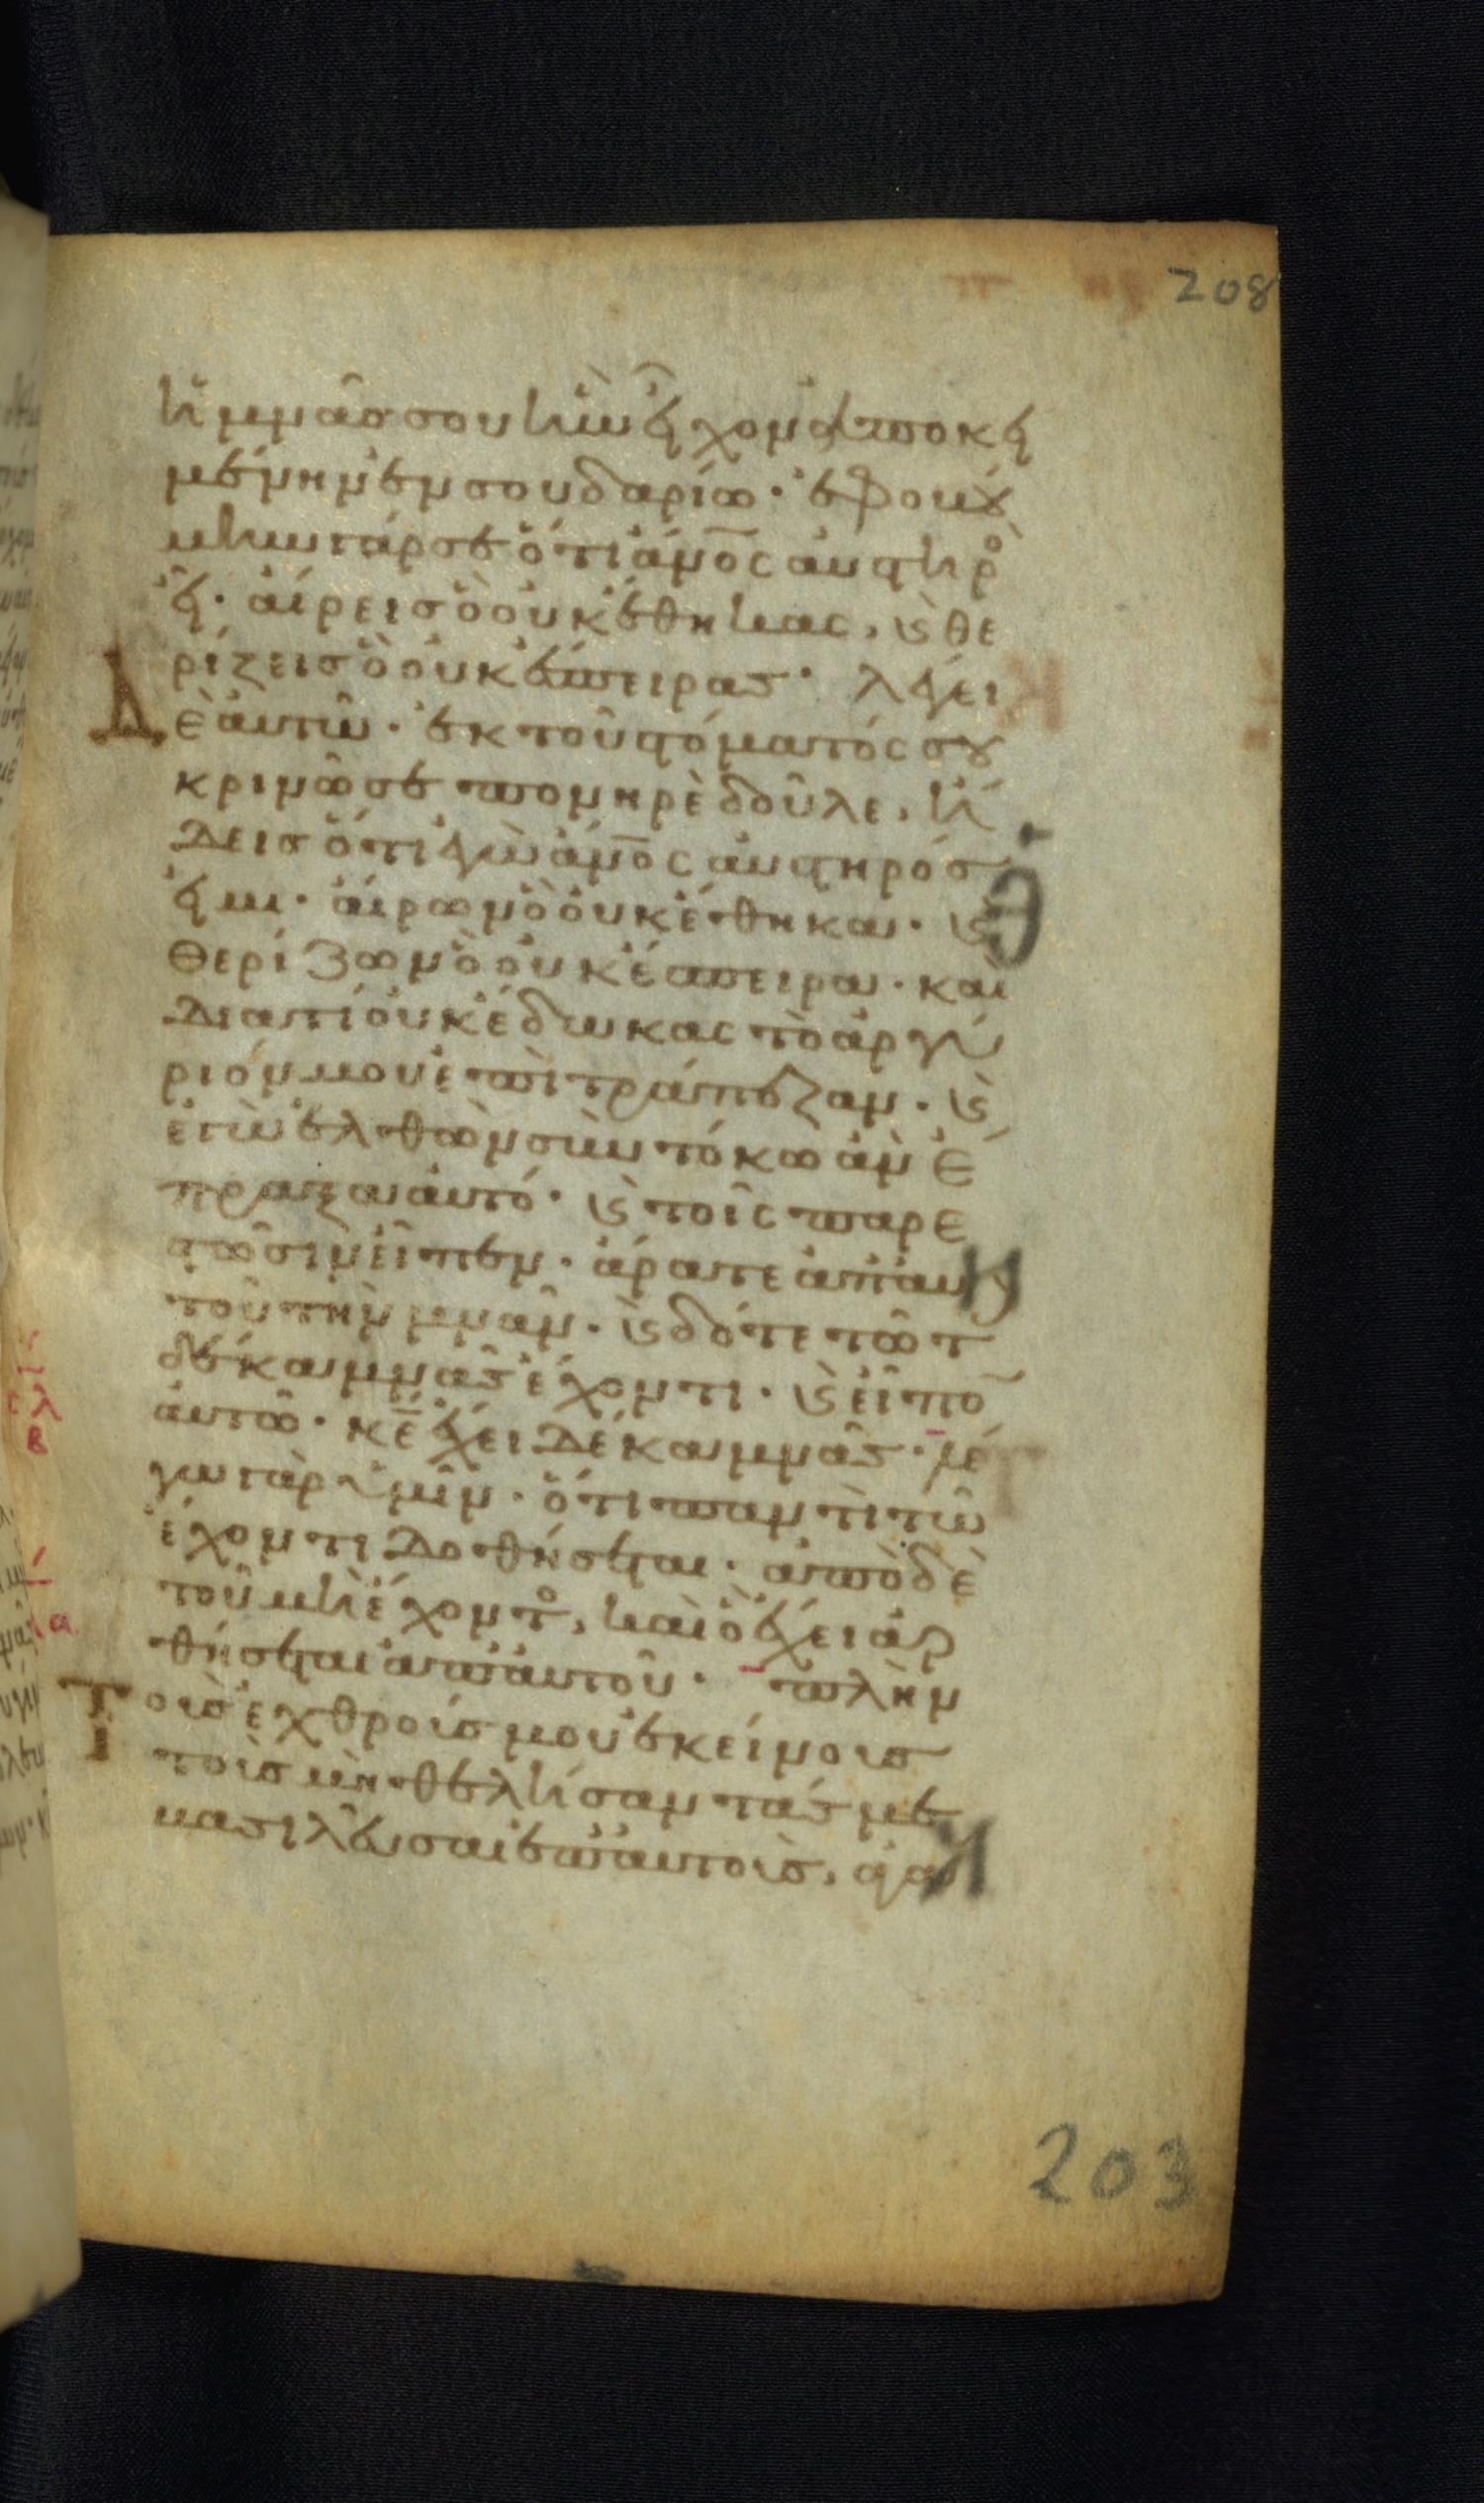 208
ἡ μνᾶ σου ἣν εἶχον ἀποκει
μένην ἐν σουδαρίω · ἐφοβού
μην γάρ σε ὅτι ἄνο̅ς αὐστηρὸ
εἶ · αἴρεις ὃ οὐκ ἔθηκας, ϗ θε
ρίζεις ὃ οὐκ ἔσπειρας · λέγει
Δὲ αὐτῶ · ἐκ τοῦ στόματός σου
κρινῶ σε πονηρὲ δοῦλε, ἤ
δεις ὅτι ἐγὼ ἄνο̅ς αὐστηρός
εἰμι · αἴρων ὃ οὐκ ἔθηκα · ϗ
θερίζων ὃ οὐκ ἔσπειρα · καὶ
διατί οὐκ ἔδωκας τὸ ἀργύ
ριόν μου ἐπὶ τράπεζαν · ϗ
ἐγὼ ἐλθὼν σὺν τόκω ἂν ἔ
πραξα αὐτό · ϗ τοῖς παρε
στῶσιν εἶπεν · ἄρατε ἀπ' αὐ
τοῦ τὴν μνᾶν · ϗ δότε τῶ τ
δέκα μνᾶς ἔχοντι · ϗ εἶπο̅
αὐτῶ · κε̅ ἔχει δέκα μνᾶς · λέ
γω γὰρ ὑμῖν · ὅτι παντὶ τῶ
ἔχοντι δοθήσεται · ἀπὸ δὲ
τοῦ μὴ ἔχοντο, καὶ ὃ ἔχει ἀρ
θήσεται ἀπ' αὐτοῦ · πλὴν
Τοὺς ἐχθρούς μου ἐκείνους
τοὺς μὴ θελήσαντάς με
βασιλεῦσαι ἐπ' αὐτοὺς,
203